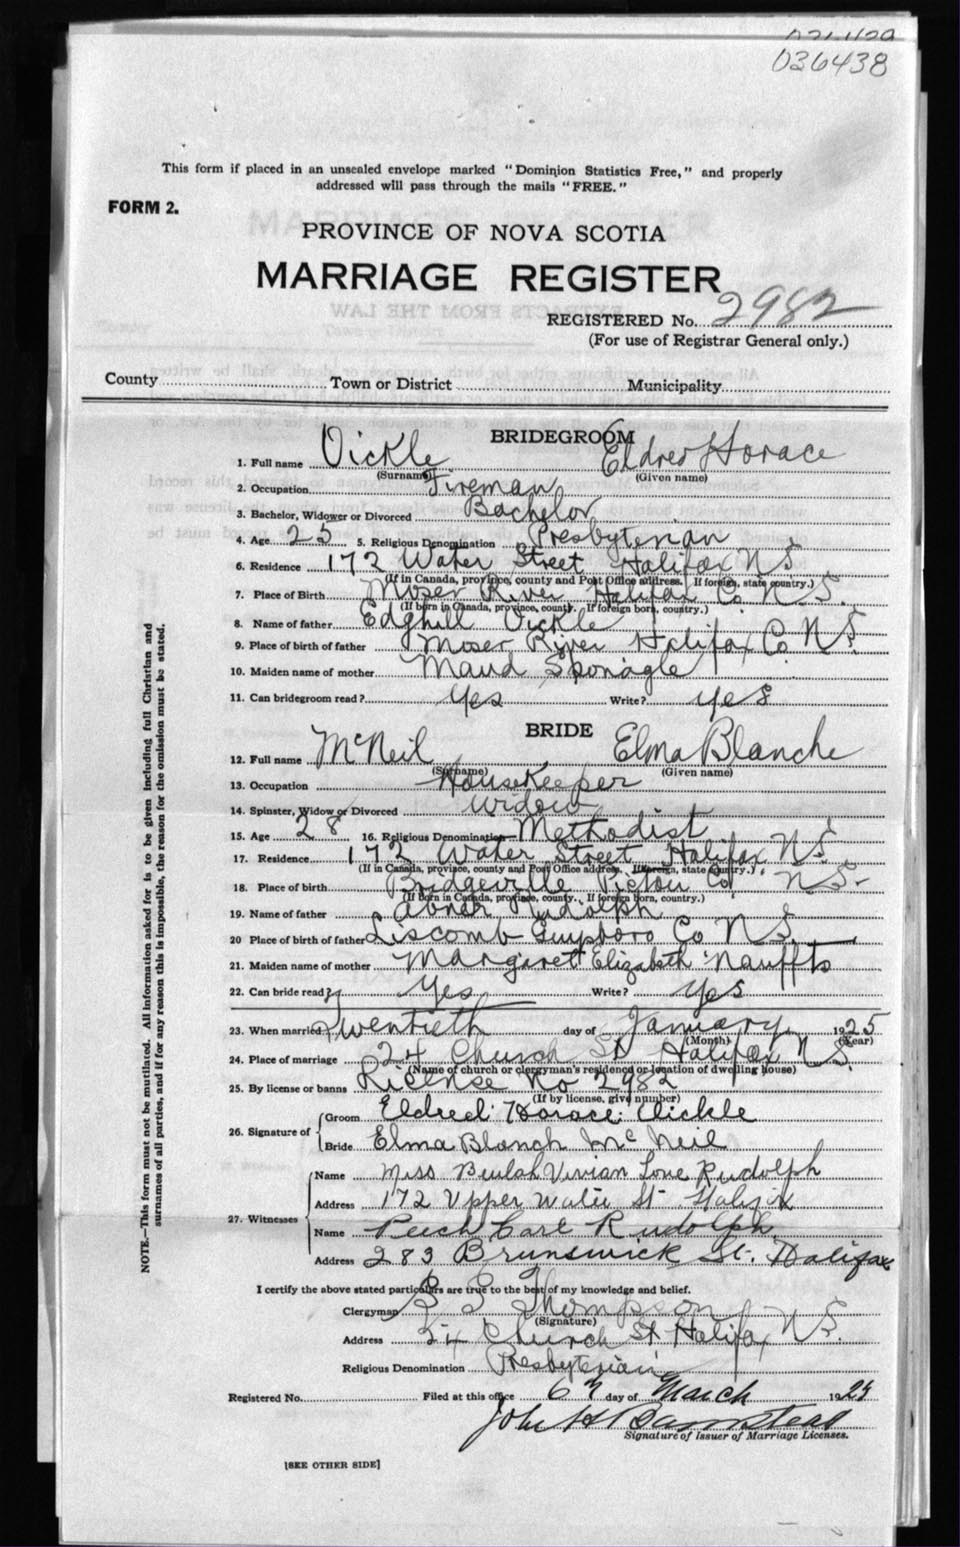 036438
This form if placed in an unsealed envelope marked "Dominion Statistics Free," and properly
addressed will pass through the mails "FREE."
FORM 2.
PROVINCE OF NOVA SCOTIA
MARRIAGE REGISTER
REGISTERED No. 2982
(For use of Registrar General only.)
County Town or District Municipality
BRIDEGROOM
1. Full name Vickle Eldred Horace
(Surname) (Given name)
2. Occupation Fireman
3. Bachelor, Widower or Divorced Bachelor
4. Age 25 5. Religious Denomination Presbyterian
6. Residence 172 Water Street Halifax N S.
(If in Canada, province, county and Post Office address. If foreign, state country.)
7. Place of Birth Moser River Halifax Co. N. S.
(If born in Canada, province, county. If foreign born, country.)
8. Name of father Edghill Vickle
9. Place of birth of father Moser River Halifax Co N S.
10. Maiden name of mother Maud Sponagle
11. Can bridegroom read? Yes Write? Yes
BRIDE
12. Full name McNeil Elma Blanche
(Surname) (Given name)
13. Occupation Housekeeper
14. Spinster, Widow or Divorced Widow
15. Age 28 16. Religious Denomination Methodist
17. Residence 172 Water Street Halifax N S.
(If in Canada, province, county and Post Office address. If foreign, state country.)
18. Place of birth Bridgeville Pictou Co N S.
(If Born in Canada, province, county. If foreign born, country.)
19. Name of father Abner Rudolph
20 Place of birth of father Liscomb Guysboro Co N S.
21. Maiden name of mother Margaret Elizabeth Nauffts
22. Can bride read? Yes Write? Yes
23. When married Twentieth day of January 1925
(Month) (Year)
24. Place of marriage 24 Church St Halifax N S.
(Name of church or clergyman's residence or location of dwelling house)
25. By license or banns License No 2982
(If by license, give number)
26. Signature of Groom Eldred Horace Vickle
Bride Elma Blanch McNeil
27. Witnesses Name Miss Beulah Vivian Love Rudolph
Address 172 Upper Water St Halifax
Name Carl Rudolph
Address 283 Brunswick St. Halifax
I certify the above stated particulars are true to the best of my knowledge and belief.
Clergyman Thompson
(Signature)
Address 24 Church St Halifax N S.
Religious Denomination Presbyterian
Registered No. Filed at this office 6 day of March 1925
John H Barnstead
Signature of Issuer of Marriage Licenses.
[SEE OTHER SIDE]
NOTE.—This form must not be mutilated. All information asked for is to be given including full Christian and
surnames of all parties, and if for any reason this is impossible, the reason for the omission must be stated.